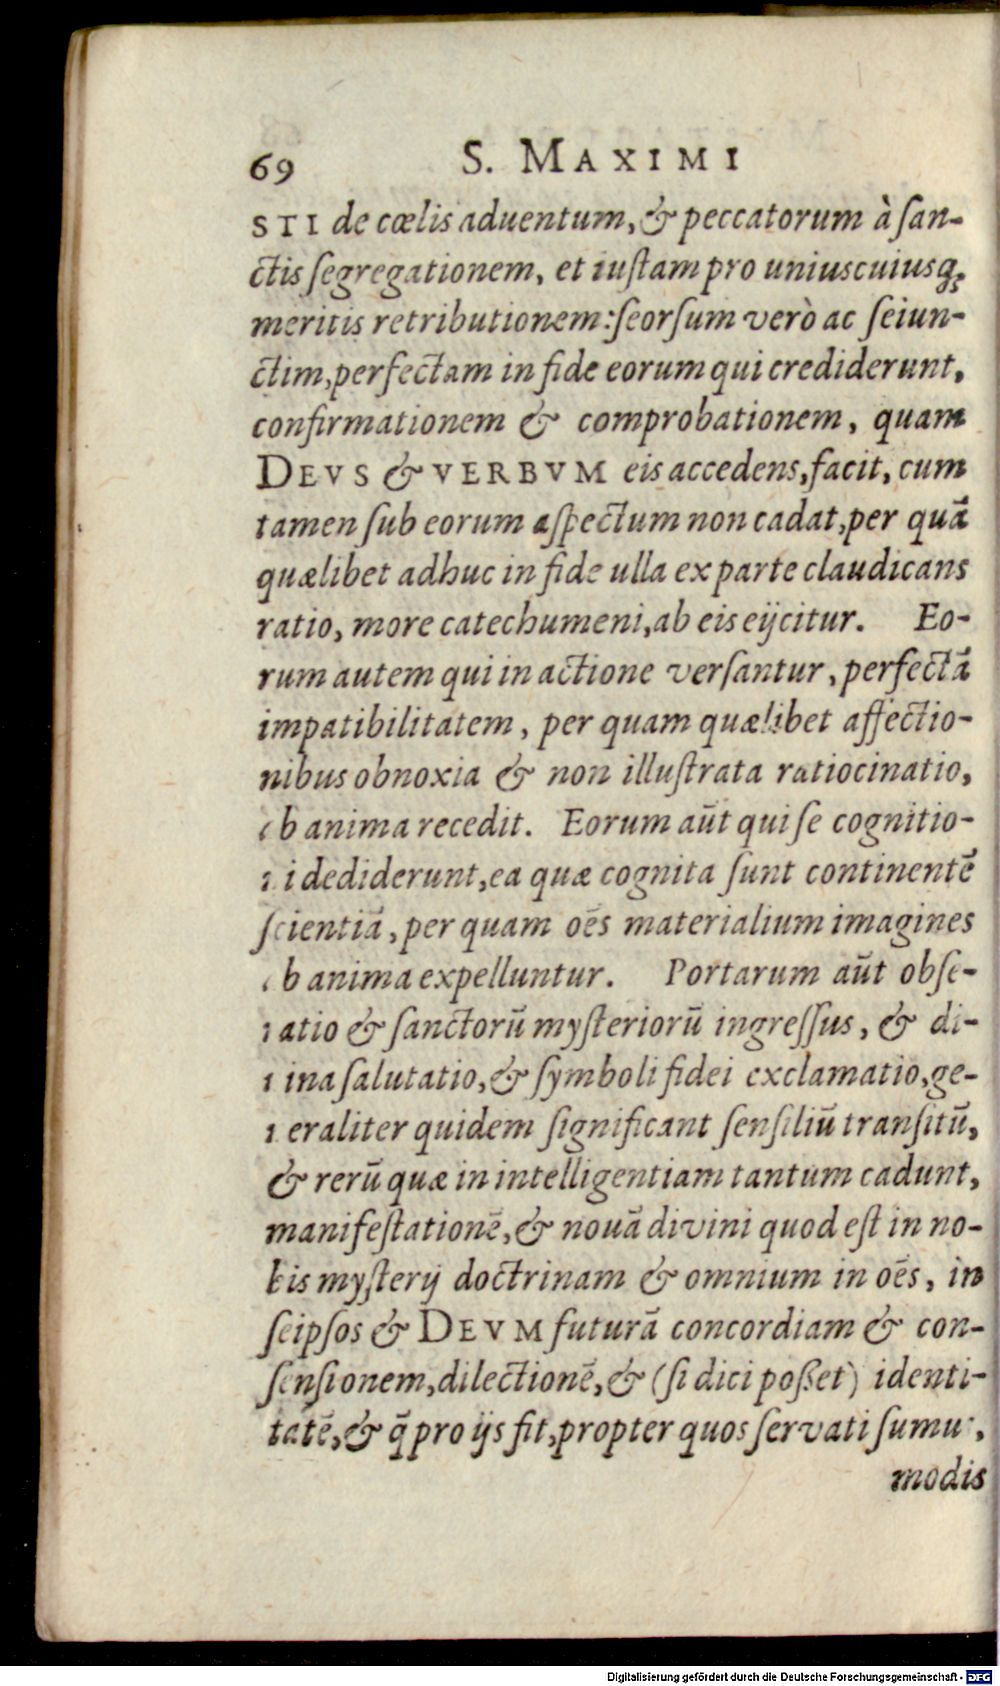 69 S. MAXIMI
STI de cœlis aduentum, & peccatorum à ſan-
ctis ſegregationem, et iuſtam pro uniuscuiusq;
meritis retributionem: ſeorſum verò ac ſeiun-
ctim, perfectam in fide eorum qui crediderunt,
confirmationem & comprobationem, quam
DEVS & VERBVM eis accedens, facit, cum
tamen ſub eorum aſpectum non cadat, per quā
quælibet adhuc in fide ulla ex parte claudicans
ratio, more catechumeni, ab eis eijcitur. Eo-
rum autem qui in actione verſantur, perfectā
impatibilitatem, per quam quælibet affectio-
nibus obnoxia & non illuſtrata ratiocinatio,
ab anima recedit. Eorum aūt qui ſe cognitio-
ni dediderunt, ea quæ cognita ſunt continentē
ſcientiā, per quam oēs materialium imagines
ab anima expelluntur. Portarum aūt obſe-
ratio & ſanctorū myſteriorū ingreſſus, & di-
uina ſalutatio, & ſymboli fidei exclamatio, ge-
neraliter quidem ſignificant ſenſiliū tranſitū,
& rerū quæ in intelligentiam tantum cadunt,
manifeſtationē, & nouā divini quod eſt in no-
bis myſterij doctrinam & omnium in oēs, in
ſeipſos & DEVM futurā concordiam & con-
ſenſionem, dilectionē, & (ſi dici poßet) identi-
tatē, & q̄ pro ijs fit, propter quos ſervati ſumus,
modis
Digitalisierung gefördert durch die Deutsche Forschungsgemeinschaft - DFG